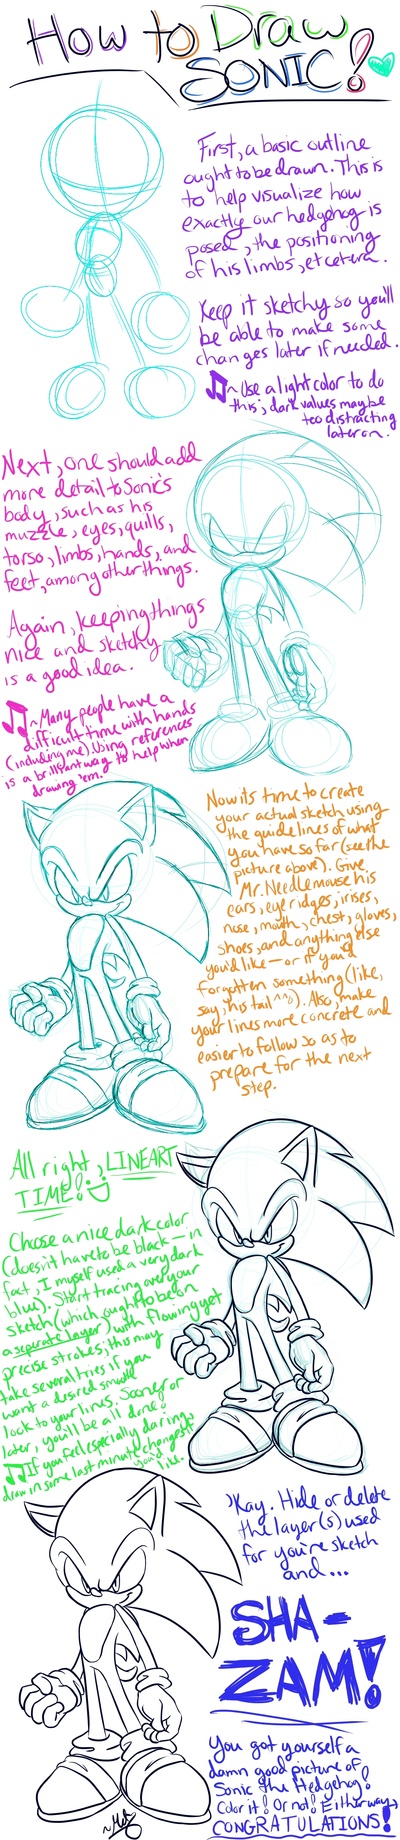 How to Draw
SONIC!
First, a basic outline
ought to be drawn. This is
to help visualize how
exactly our hedgehog is
posed, the positioning
of his limbs, etcetera.
Keep it sketchy so you'll
be able to make some
changes later if needed.
~ Use a light color to do
this; dark values may be
too distracting
later on.
Next, one should add
more detail to Sonic's
body, such as his
muzzle, eyes, quills,
torso, limbs, hands, and
feet, among other things.
Again, keeping things
nice and sketchy
is a good idea.
~ Many people have a
difficult time with hands
(including me). Using references
is a brilliant way to help when
drawing 'em.
Now its time to create
your actual sketch using
the guidelines of what
you have so far (see the
picture above). Give
Mr. Needlemouse his
ears, eye ridges, irises,
nose, mouth, chest, gloves,
shoes, and anything else
you'd like — or if you'd
forgotten something (like,
say, his tail ^^;). Also, make
your lines more concrete and
easier to follow so as to
prepare for the next
step.
All right, LINEART
TIME!
Choose a nice dark color
(doesn't have to be black — in
fact, I myself used a very dark
blue). Start tracing over your
sketch (which ought to be on
a separate layer) with flowing yet
precise strokes; this may
take several tries if you
want a desired smooth
look to your lines. Sooner or
later, you'll be all done!
If you feel especially daring,
draw in some last minute changes if
you'd
like.
'Kay. Hide or delete
the layer(s) used
for you're sketch
and...
SHA-
ZAM!
You got yourself a
damn good picture of
Sonic the Hedgehog!
Color it! Or not! Either way,
CONGRATULATIONS!